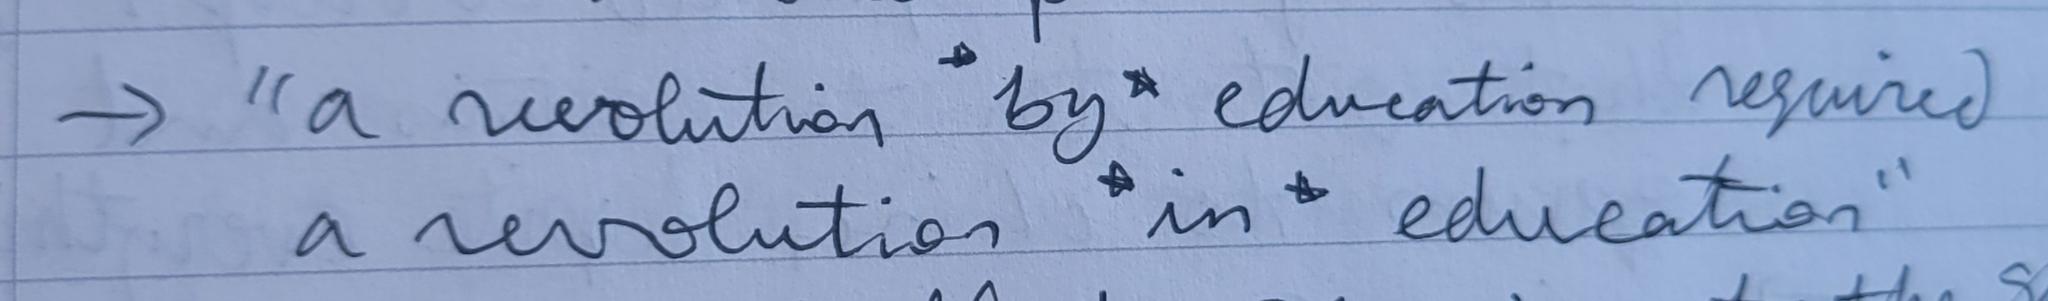 → "a revolution *by* education required
a revolution *in* education"